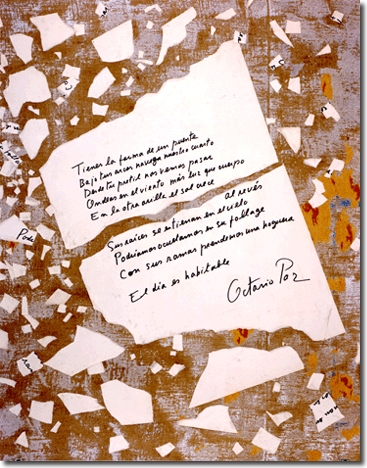 Tienes la forma de un puente
Bajo tus arcos navega nuestro cuarto
Desde tu pretil nos vemos pasar
Ondeas en el viento más luz que cuerpo
En la otra orilla el sol crece al revés
Sus raíces se entierran en el cielo
Podríamos ocultarnos en su follage
Con sus ramas prendemos una hoguera
El día es habitable
Octavio Paz